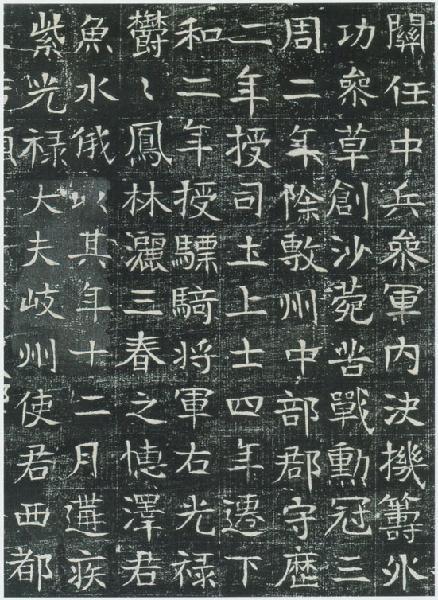 關任中兵叅軍內決機籌外
功叅草創沙菀苦戰勳冠三
周二年除敷州中部郡守歷
二年授司土上士四年遷下
和二年授驃騎将軍右光禄
欝〻鳳林灑三春之憓澤君
魚水俄以其年十二月遘疾
紫光禄大夫岐州使君西都